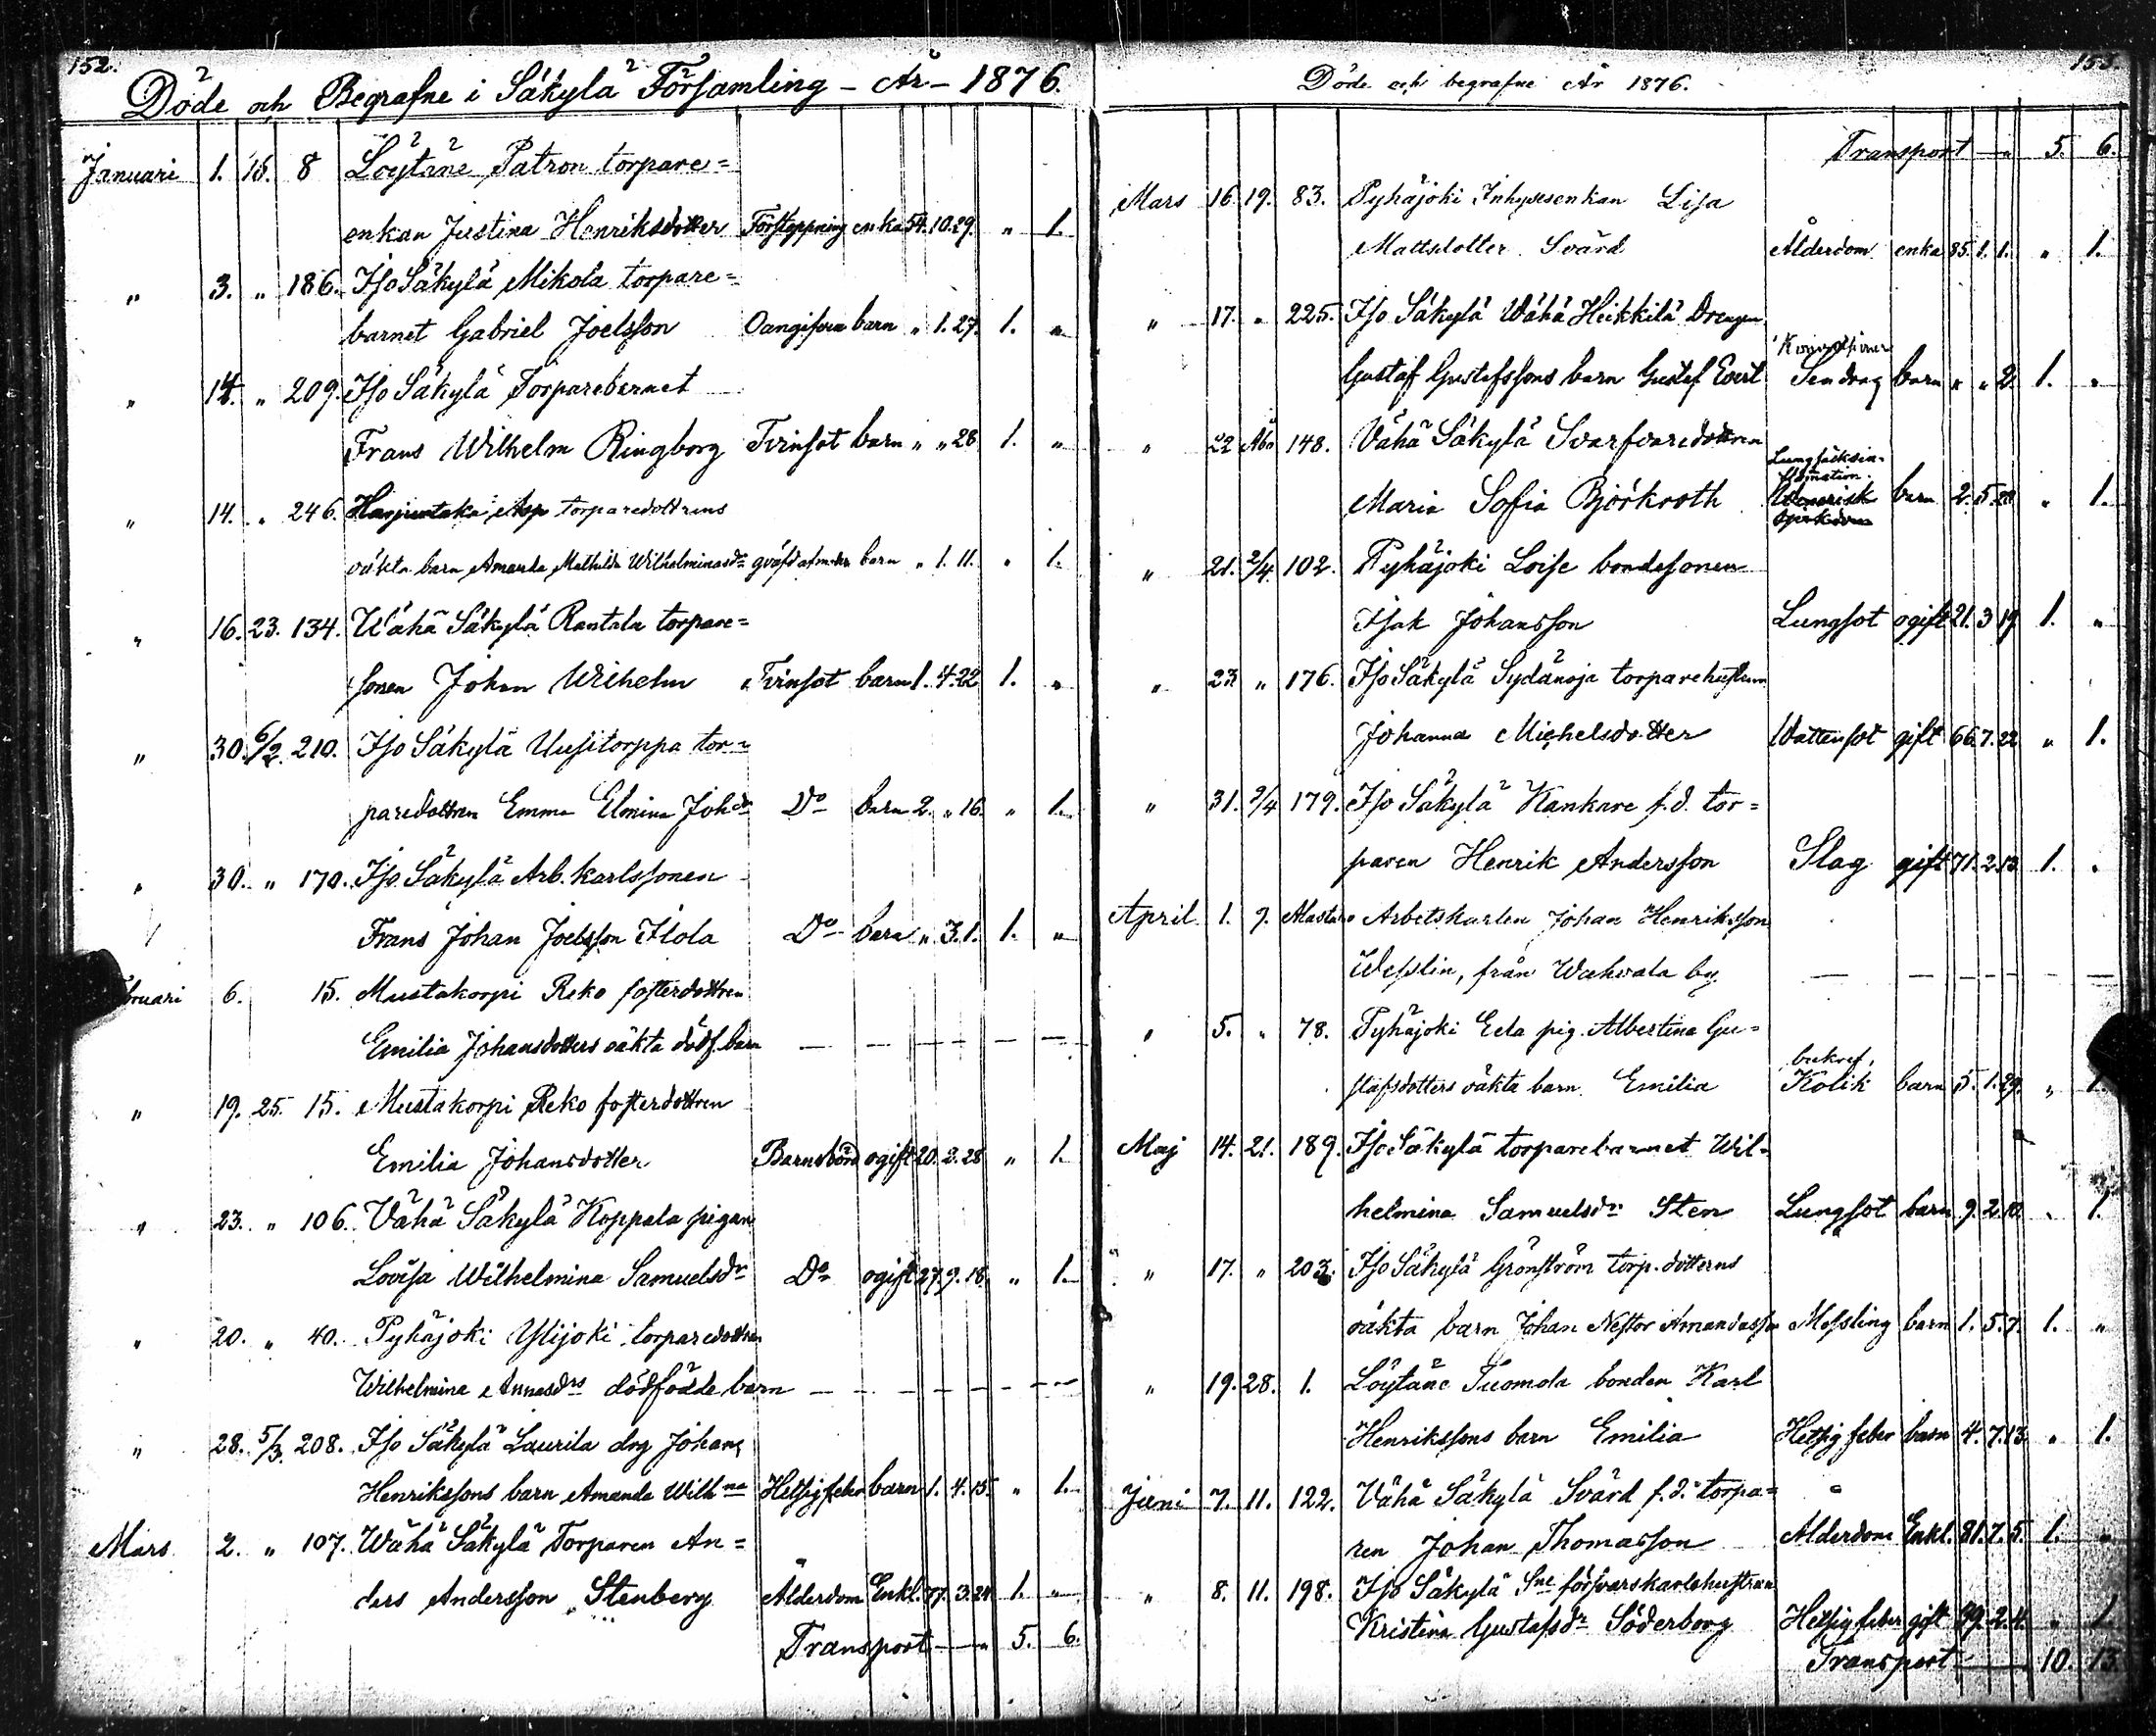 152.
Döde och Begrafne i Säkylä Församling - År - 1876.
Januari 1. 15. 8 Löytäne Patron torpare=
enkan Justina Henriksdotter Förstoppning enka 54. 10. 29. " 1.
" 3. " 186. Iso Säkylä Mikola torpare=
barnet Gabriel Joelsson Oangifven barn " 1. 27. 1. "
" 14. " 209. Iso Säkylä Torparebarnet
Frans Wilhelm Ringborg Tvinsot barn " " 28 1. "
" 14. " 246. Harjuntaka Asp torparedottrens
oäkta barn Amanda Mathilda Wilhelminasdr qväfd af modren barn " 1. 11. " 1.
" 16. 23. 134. Wähä Säkylä Rantala torpare=
sonen Johan Wilhelm Tvinsot barn 1. 4. 22 1. "
" 30. 6/2. 210. Iso Säkylä Uusitorppa tor=
paredottren Emma Elmina Johdr Do barn 2. " 16. " 1.
" 30. " 170. Iso Säkylä Arb. karlssonen
Frans Johan Joelsson Ilola Do barn " 3. 1. 1. "
bruari 6. 15. Mustakorpi Reko fosterdottren
Emilia Johansdotters oäkta dödf. barn — — — — — —
" 19. 25. 15. Mustakorpi Reko fosterdottren
Emilia Johansdotter Barnsbörd ogift 20. 2. 28 " 1.
" 23. " 106. Vähä Säkylä Koppala pigan
Lovisa Wilhelmina Samuelsdr Do ogift 27. 9. 18. " 1.
" 20. " 40. Pyhäjoki Ylijoki torparedottren
Wilhelmina Annasdrs dödfödde barn — — — — — —
" 28. 5/3. 208. Iso Säkylä Laurila drg Johan
Henrikssons barn Amanda Wilhna Hetsig feber barn 1. 4. 15. " 1.
Mars 2. " 107. Wähä Säkylä Torparen An=
ders Andersson Stenberg Ålderdom Enkl. 77. 3. 24 1. "
Transport — 5. 6.
153.
Döde och begrafne År 1876.
Transport — 5. 6.
Mars 16. 19. 83. Pyhäjoki Inhysesenkan Lisa
Mattsdotter Svärd Ålderdom enka 85. 1. 1. " 1.
" 17. " 225. Iso Säkylä Wähä Heikkilä Drengen
Gustaf Gustafssons barn Gustaf Evert Sendrag barn " " 2. 1. "
" 22 Åbo 148. Vähä Säkylä Svarfvaredottren
Maria Sofia Björkroth barn 2. 5. 28 " 1.
" 21. 2/4. 102. Pyhäjoki Loise bondesonen
Isak Johansson Lungsot ogift 21. 3 19 1. "
" 23 " 176. Iso Säkylä Sydänoja torparehustrun
Johanna Michelsdotter Wattensot gift 66. 7. 22 " 1.
" 31. 2/4 179. Iso Säkylä Kankare f.d. tor=
paren Henrik Andersson Slag gift 71. 2. 13 1. "
April 1. 9. Alastaro Arbetskarlen Johan Henriksson
Wesslin, från Wahvala by. — — — — — —
" 5. " 78. Pyhäjoki Eela pig. Albertina Gu=
stafsdotters oäkta barn Emilia Kolik barn 5. 1. 29. " 1.
Maj 14. 21. 189. Iso Säkylä torparebarnet Wil=
helmina Samuelsdr Sten Lungsot barn 9. 2. 10. " 1.
" 17. " 203. Iso Säkylä Grönström torp. dotterns
oäkta barn Johan Nestor Amandasson Messling barn 1. 5. 7. 1. "
" 19. 28. 1. Löytäne Tuomola bonden Karl
Henrikssons barn Emilia Hetsig feber barn 4. 7. 13. " 1.
Juni 7. 11. 122. Vähä Säkylä Svärd f.d. torpa=
ren Johan Thomasson Ålderdom Enkl. 81. 7. 5. 1. "
" 8. 11. 198. Iso Säkylä Sne försvarskarlshustrun
Kristina Gustafsdr Söderborg Hetsig feber gift 39. 2. 4. " 1.
Transport — 10. 13.